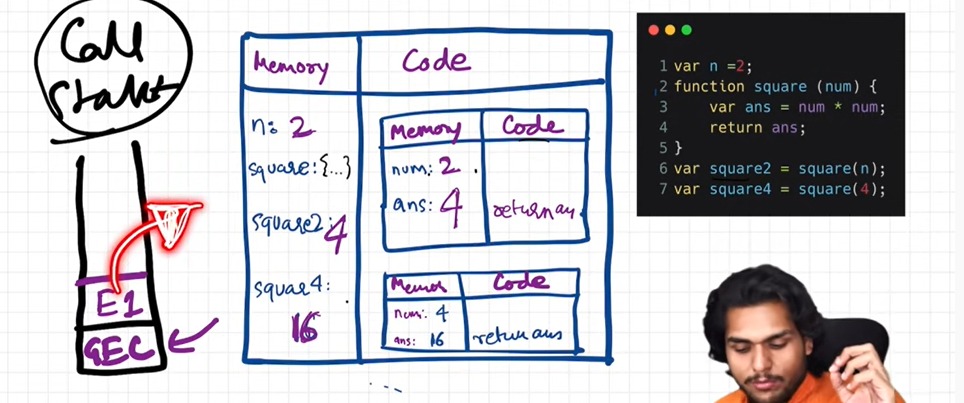 Call
Stakt
E1
GEC
Memory
Code
n: 2
square:{...}
square2: 4
squar4:
16
Memory
Code
num: 2
ans: 4
return an
Memor
Code
num: 4
ans: 16
return ans
1 var n =2;
2 function square (num) {
3 var ans = num * num;
4 return ans;
5 }
6 var square2 = square(n);
7 var square4 = square(4);